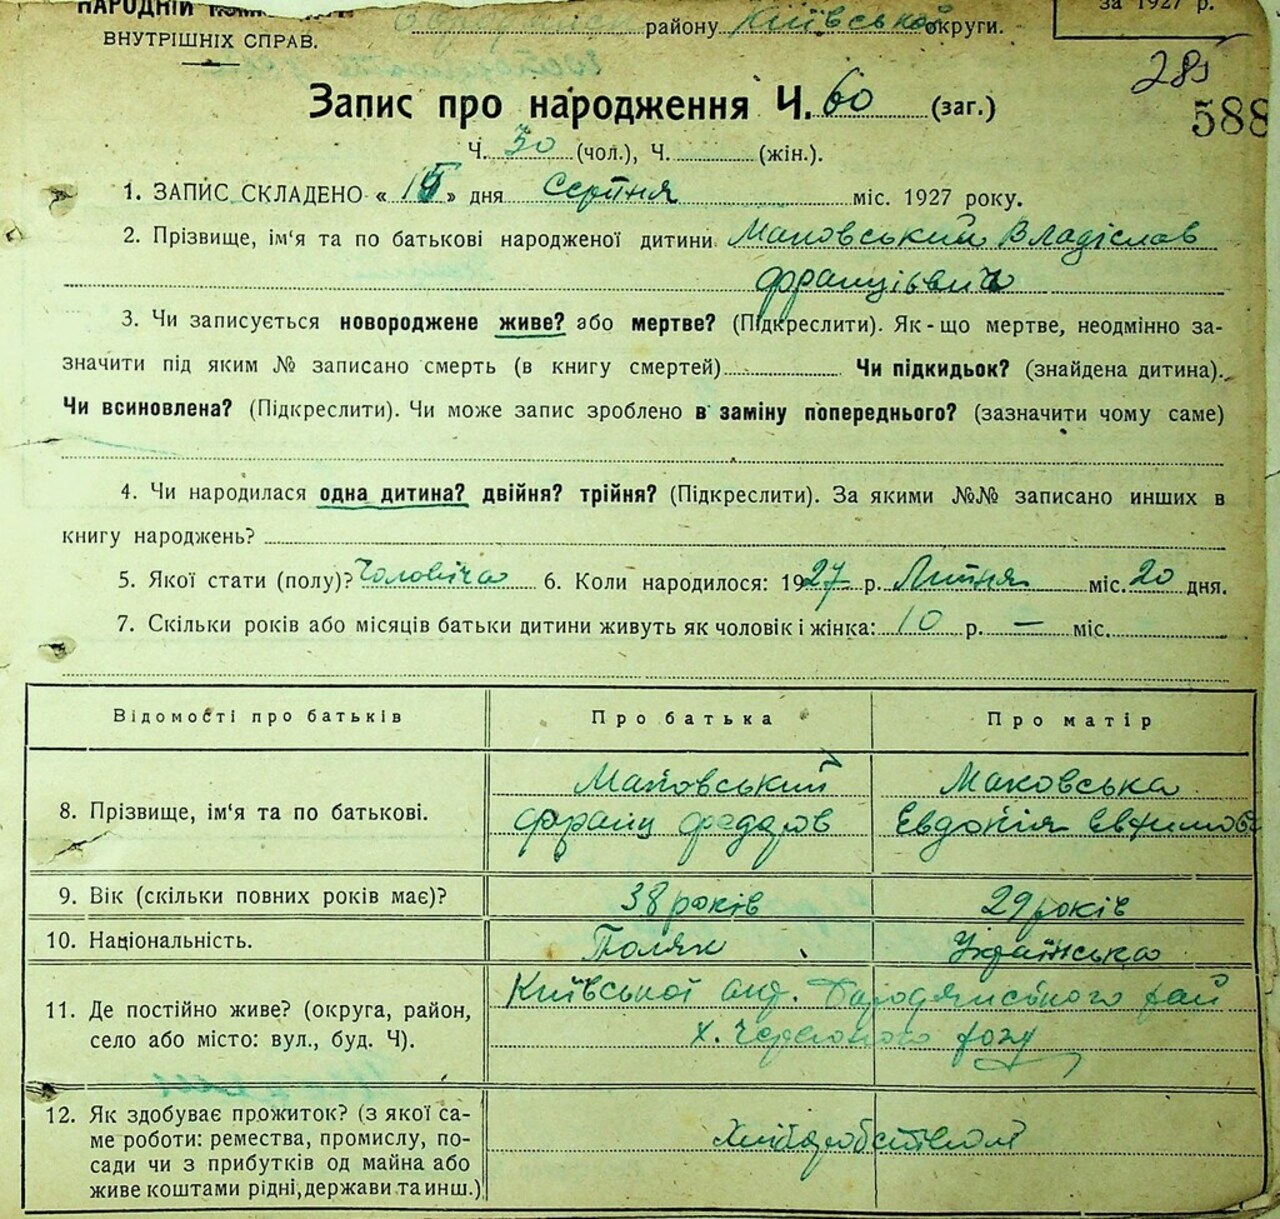 НАРОДНІЙ
ВНУТРІШНІХ СПРАВ.
району Київської округи.
за 1927 р.
285
588
Запис про народження Ч. 60 (заг.)
Ч. 30 (чол.), Ч. (жін.).
1. ЗАПИС СКЛАДЕНО « » дня Серпня міс. 1927 року.
2. Прізвище, ім‘я та по батькові народженої дитини Маковський Владіслав
Францівич
3. Чи записується новороджене живе? або мертве? (Підкреслити). Як-що мертве, неодмінно за-
значити під яким № записано смерть (в книгу смертей) Чи підкидьок? (знайдена дитина).
Чи всиновлена? (Підкреслити). Чи може запис зроблено в заміну попереднього? (зазначити чому саме)
4. Чи народилася одна дитина? двійня? трійня? (Підкреслити). За якими №№ записано инших в
книгу народжень?
5. Якої стати (полу)? Чоловіча 6. Коли народилося: 1927 р. Липня міс. 20 дня.
7. Скільки років або місяців батьки дитини живуть як чоловік і жінка: 10 р. — міс.
Відомості про батьків Про батька Про матір
8. Прізвище, ім‘я та по батькові. Маковський Маковська
Франц Федоров Евдокія Евтимов
9. Вік (скільки повних років має)? 38 років 29 років
10. Національність. Поляк Українська
11. Де постійно живе? (округа, район, Київської окр. Бородянського рай
село або місто: вул., буд. Ч). х. Червоного рогу
12. Як здобуває прожиток? (з якої са-
ме роботи: ремества, промислу, по- Хліборобством
сади чи з прибутків од майна або
живе коштами рідні, держави та инш.)